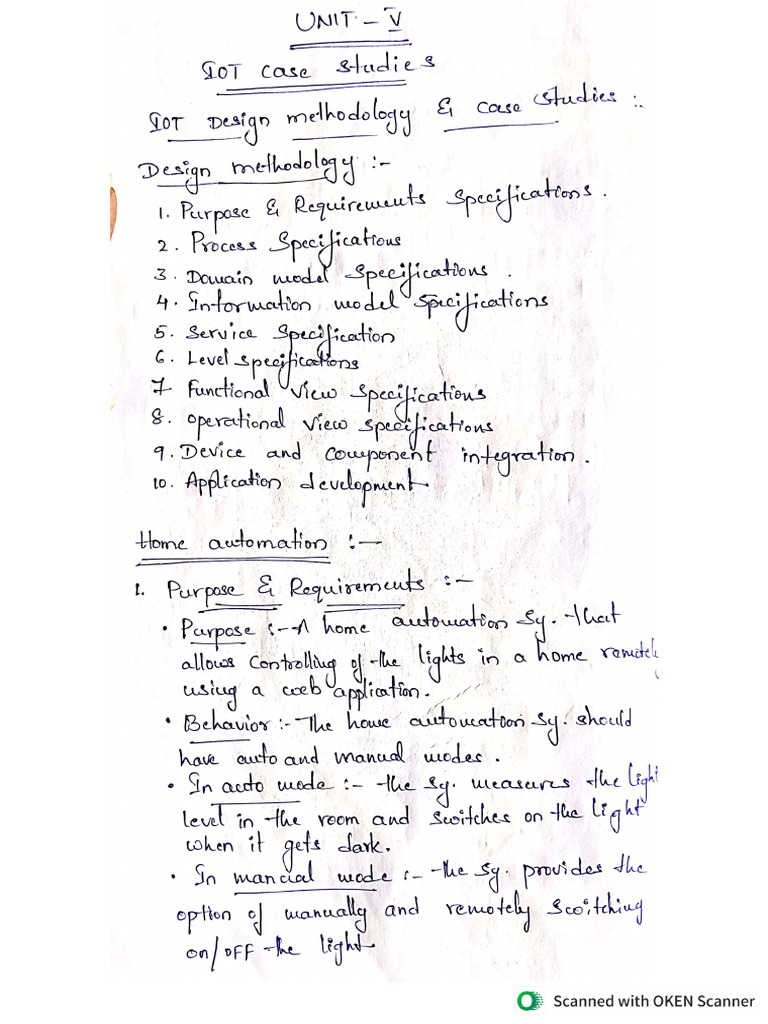 UNIT - V
IOT case studies
IOT Design methodology & case studies :-
Design methodology :-
1. Purpose & Requirements Specifications.
2. Process Specifications
3. Domain model Specifications.
4. Information model Specifications
5. Service Specification
6. Level specifications
7 Functional View Specifications
8. Operational View Specifications
9. Device and component integration.
10. Application development
Home automation :-
1. Purpose & Requirements :-
• Purpose :- A home automation Sy. that
allows controlling of the lights in a home remotely
using a web application.
• Behavior :- The home automation Sy. should
have auto and manual modes.
• In auto mode :- the Sy. measures the light
level in the room and switches on the light
when it gets dark.
• In manual mode :- the Sy. provides the
option of manually and remotely switching
on/OFF the light
Scanned with OKEN Scanner